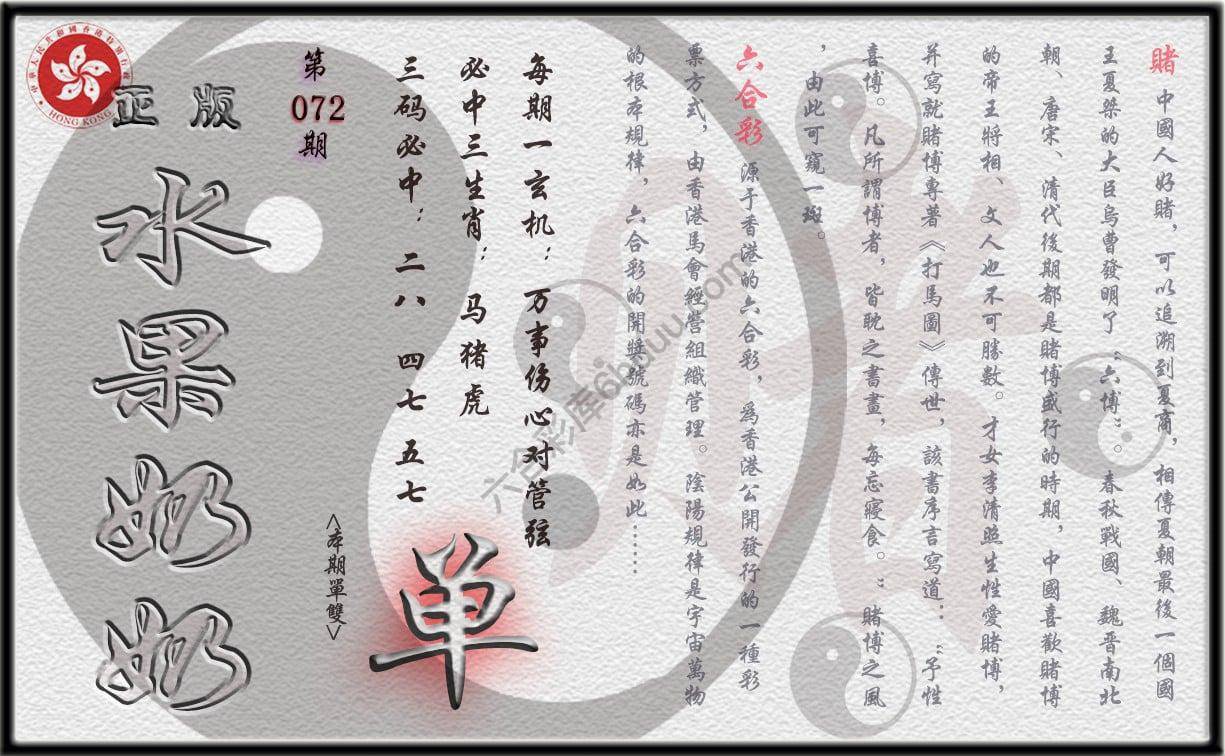 賭 中國人好賭，可以追溯到夏商，相傳夏朝最後一個國
王夏桀的大臣烏曹發明了“六博”。春秋戰國、魏晉南北
朝、唐宋、清代後期都是賭博盛行的時期，中國喜歡賭博
的帝王將相、文人也不可勝數。才女李清照生性愛賭博，
并寫就賭博專著《打馬圖》傳世，該書序言寫道：“予性
喜博。凡所謂博者，皆耽之書畫，每忘寢食。”賭博之風
，由此可窺一斑。
六合彩 源于香港的六合彩，爲香港公開發行的一種彩
票方式，由香港馬會經營組織管理。陰陽規律是宇宙萬物
的根本規律，六合彩的開獎號碼亦是如此……
每期一玄机：万事伤心对管弦
必中三生肖：马猪虎
三码必中：二八 四七 五七
单
<本期單雙>
第
072
期
正版
水果奶奶
中華人民共和國香港特別行政區
HONG KONG
六合彩库6hduu.com